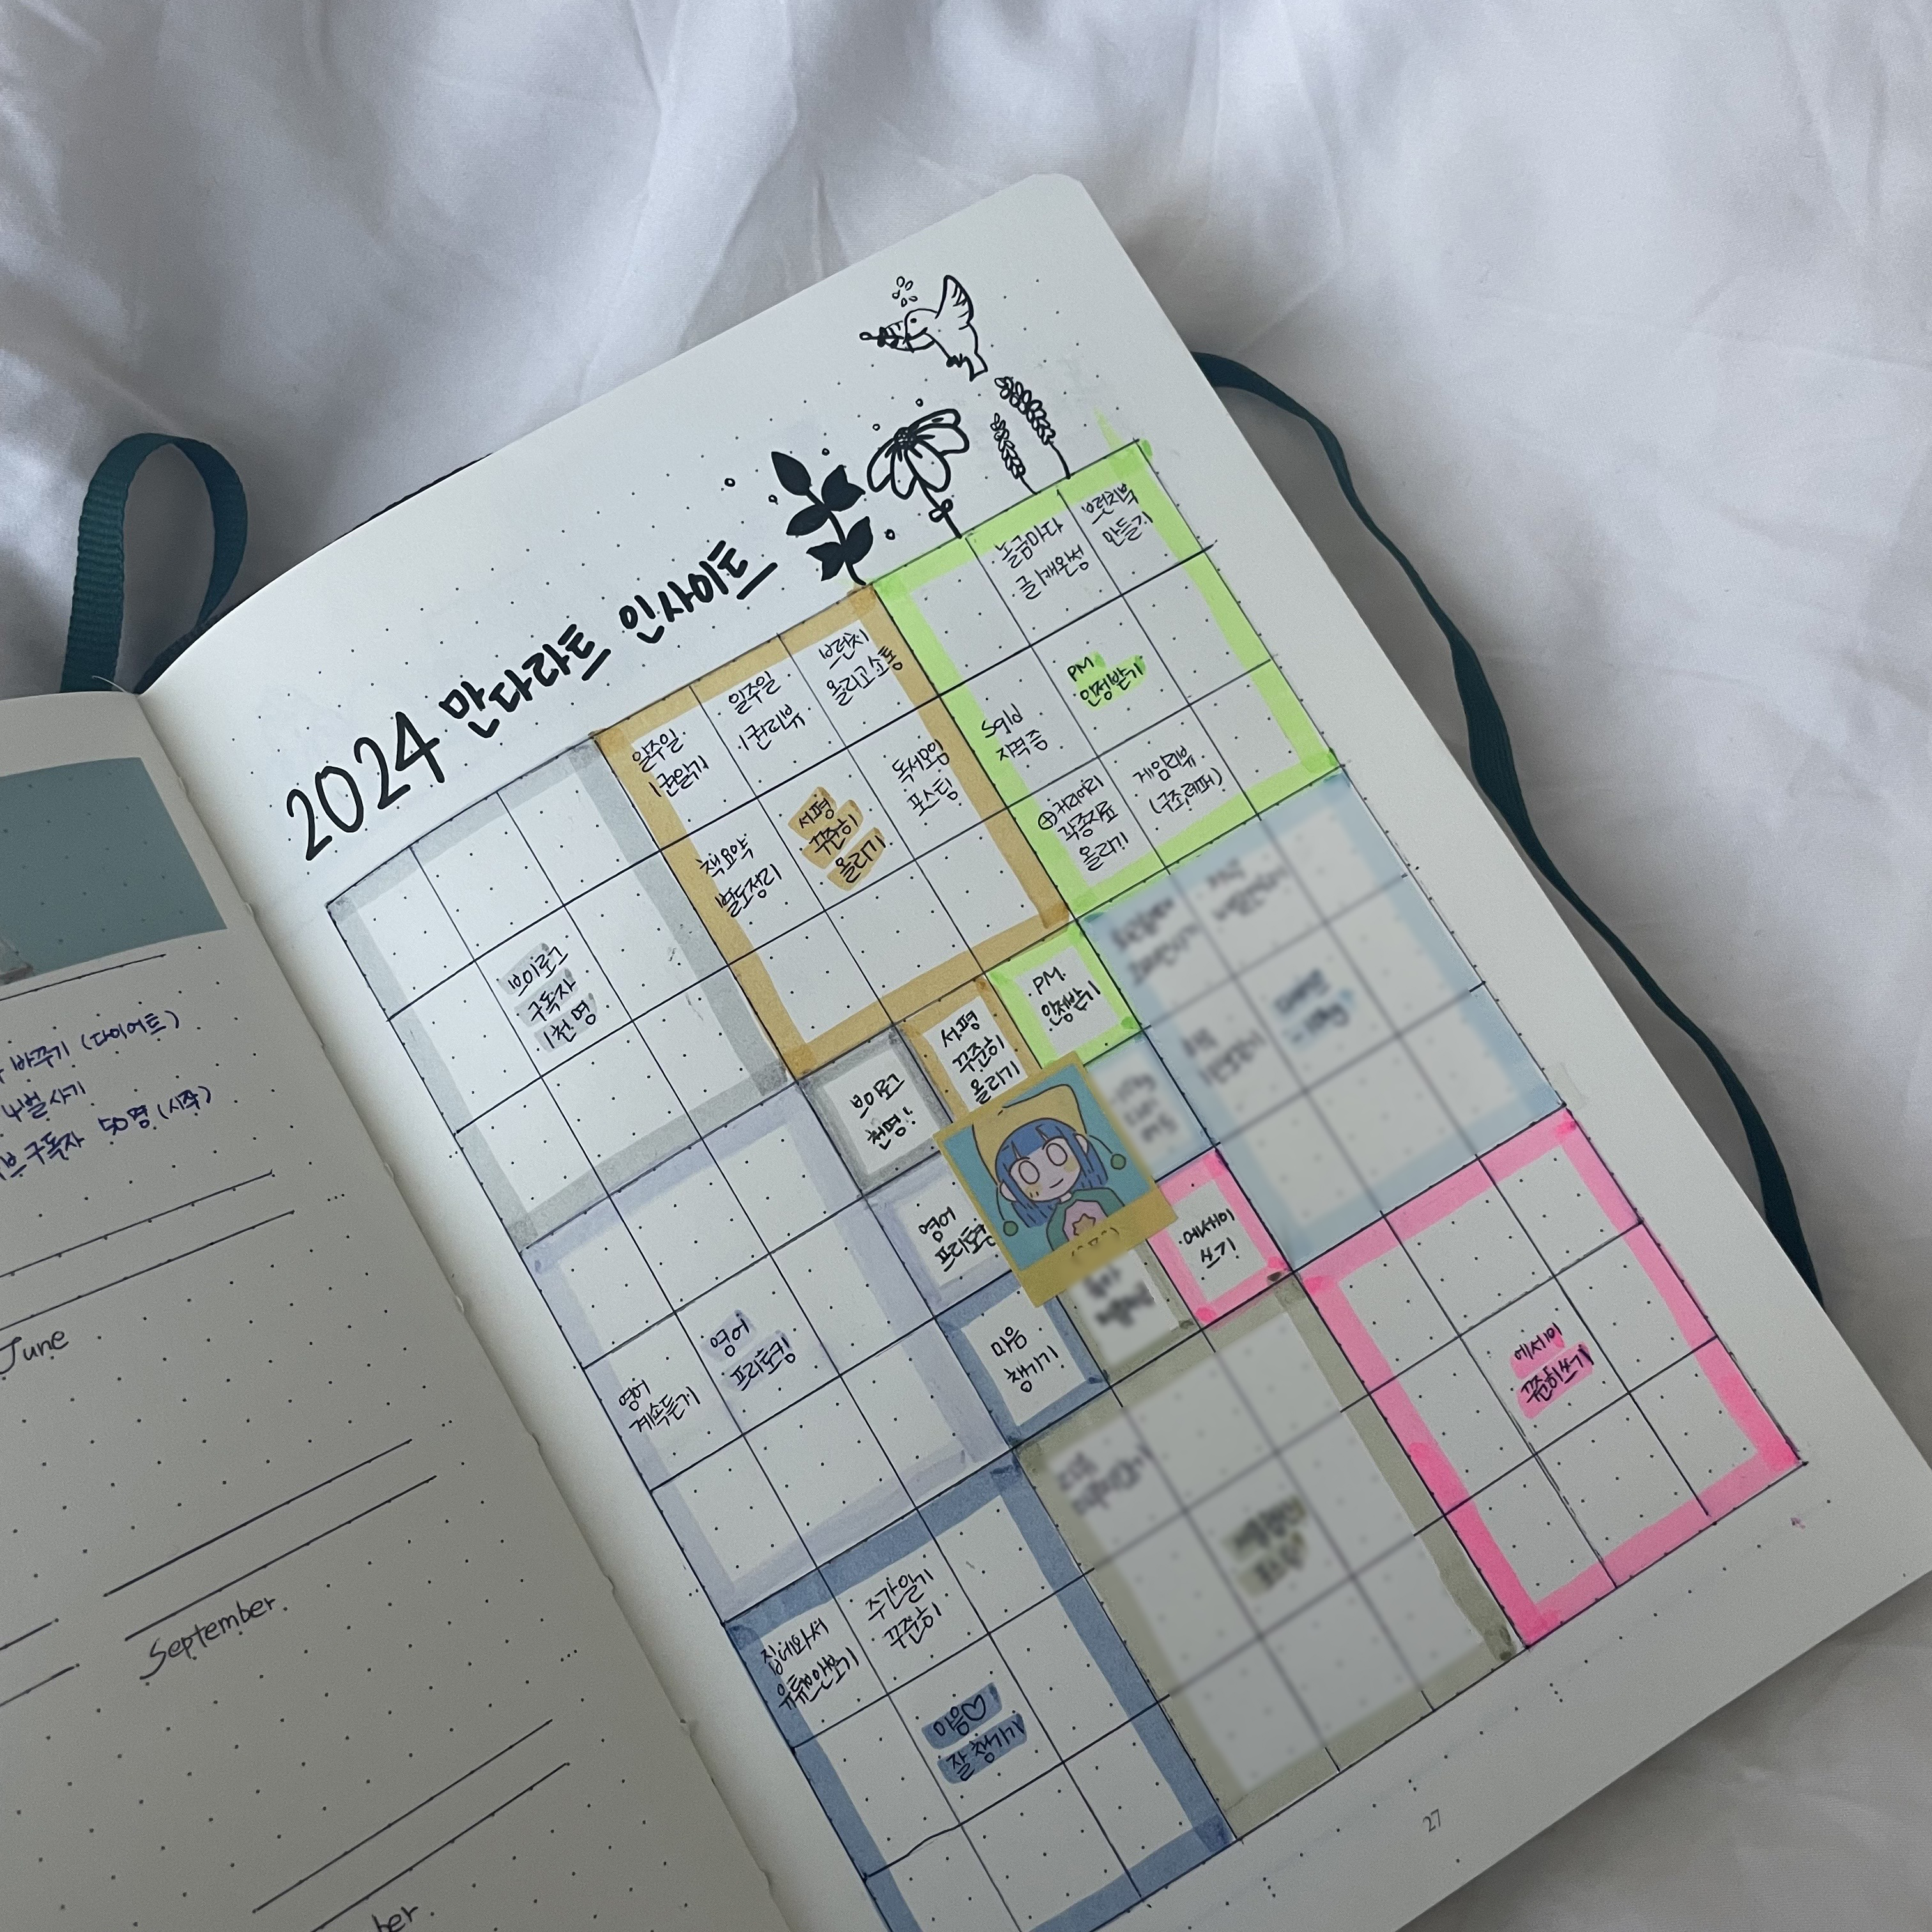 2024 만다라트 인사이트
브이로그
구독자
1천 명
일주일
1권읽기
일주일
1권리뷰
브런치
올리고 소통
책요약
별도정리
서평
꾸준히
올리기
독서모임
포스팅
놀금마다
글 1개완성
브런치북
만들기
Sqld
자격증
PM
인정받기
⊕커리어리
각종자료
올리기
게임리뷰
브이로그
천명!
서평
꾸준히
올리기
PM
인정받기
영어
마음
챙기기
에세이
쓰기
영어
계속듣기
영어
프리토킹
집에와서
유튭안보기
주간일기
꾸준히
마음♡
잘 챙기기
에세이
꾸준히쓰기
바꾸기 (다이어트)
4벌 사기
구독자 50명 (시작)
June
September
27